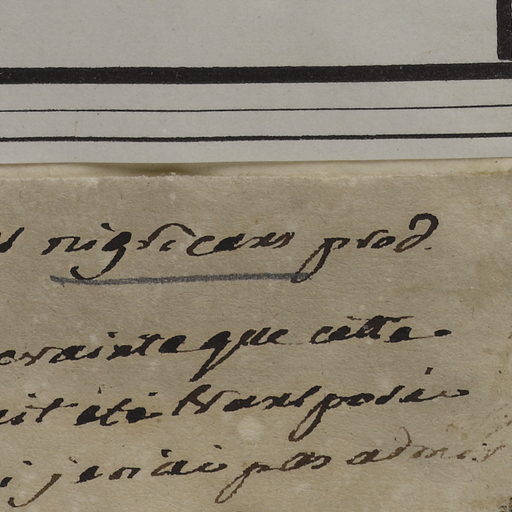 nigricans prod.
crainte que cette
ait été transposée
j en ai pas admis